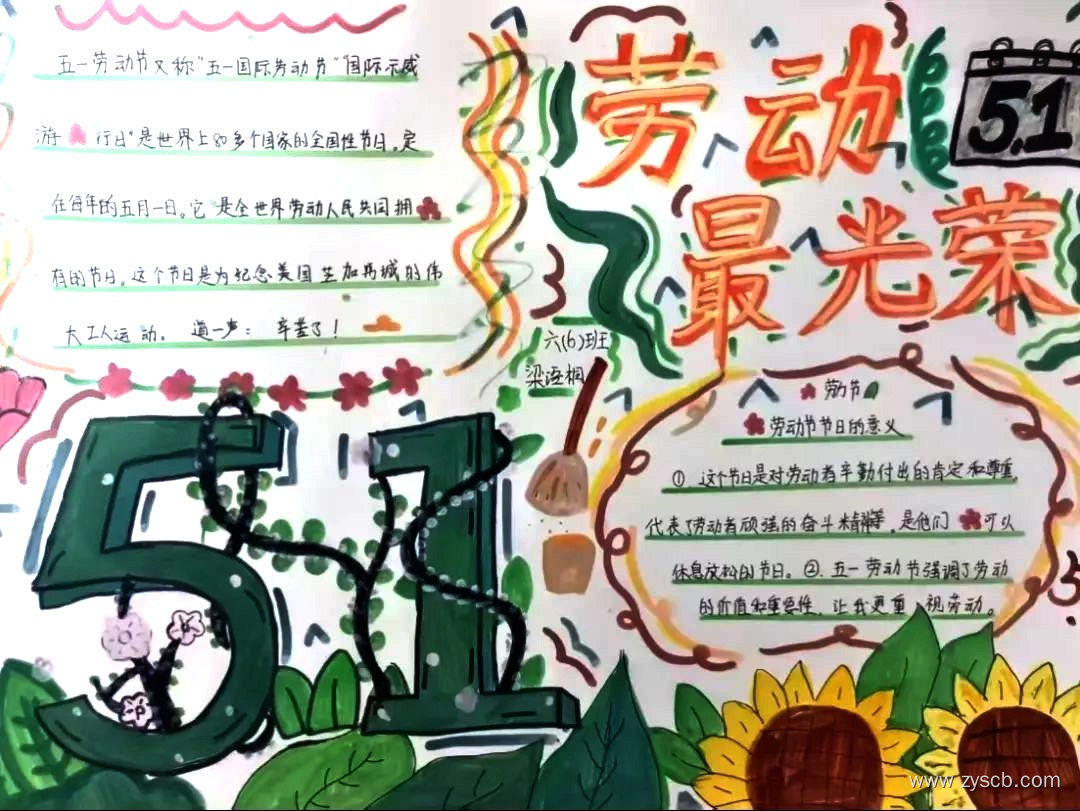 五一劳动节又称"五一国际劳动节""国际示威
游行日"是世界上80多个国家的全国性节日。定
在每年的五月一日。它是全世界劳动人民共同拥
有的节日。这个节日是为纪念美国芝加哥城的伟
大工人运动。道一声：辛苦了！
劳动
5.1
最光荣
六(6)班
51
劳动节
劳动节节日的意义
① 这个节日是对劳动者辛勤付出的肯定和尊重，
代表了劳动者顽强的奋斗精神，是他们可以
休息放松的节日。②.五一劳动节强调了劳动
的价值和重要性，让我更重视劳动。
5.
www.zyscb.com